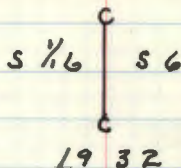 C
S 1/16 S 6
C
1932